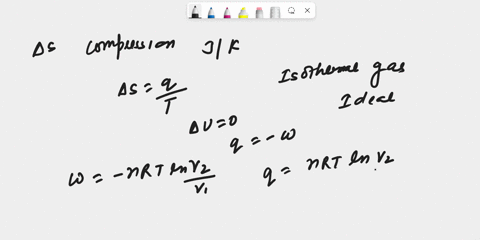 ΔS compression J/K
Isothermal gas
Ideal
ΔS = q/T
ΔU = 0
q = -w
w = -nRT ln V2/V1
q = nRT ln V2